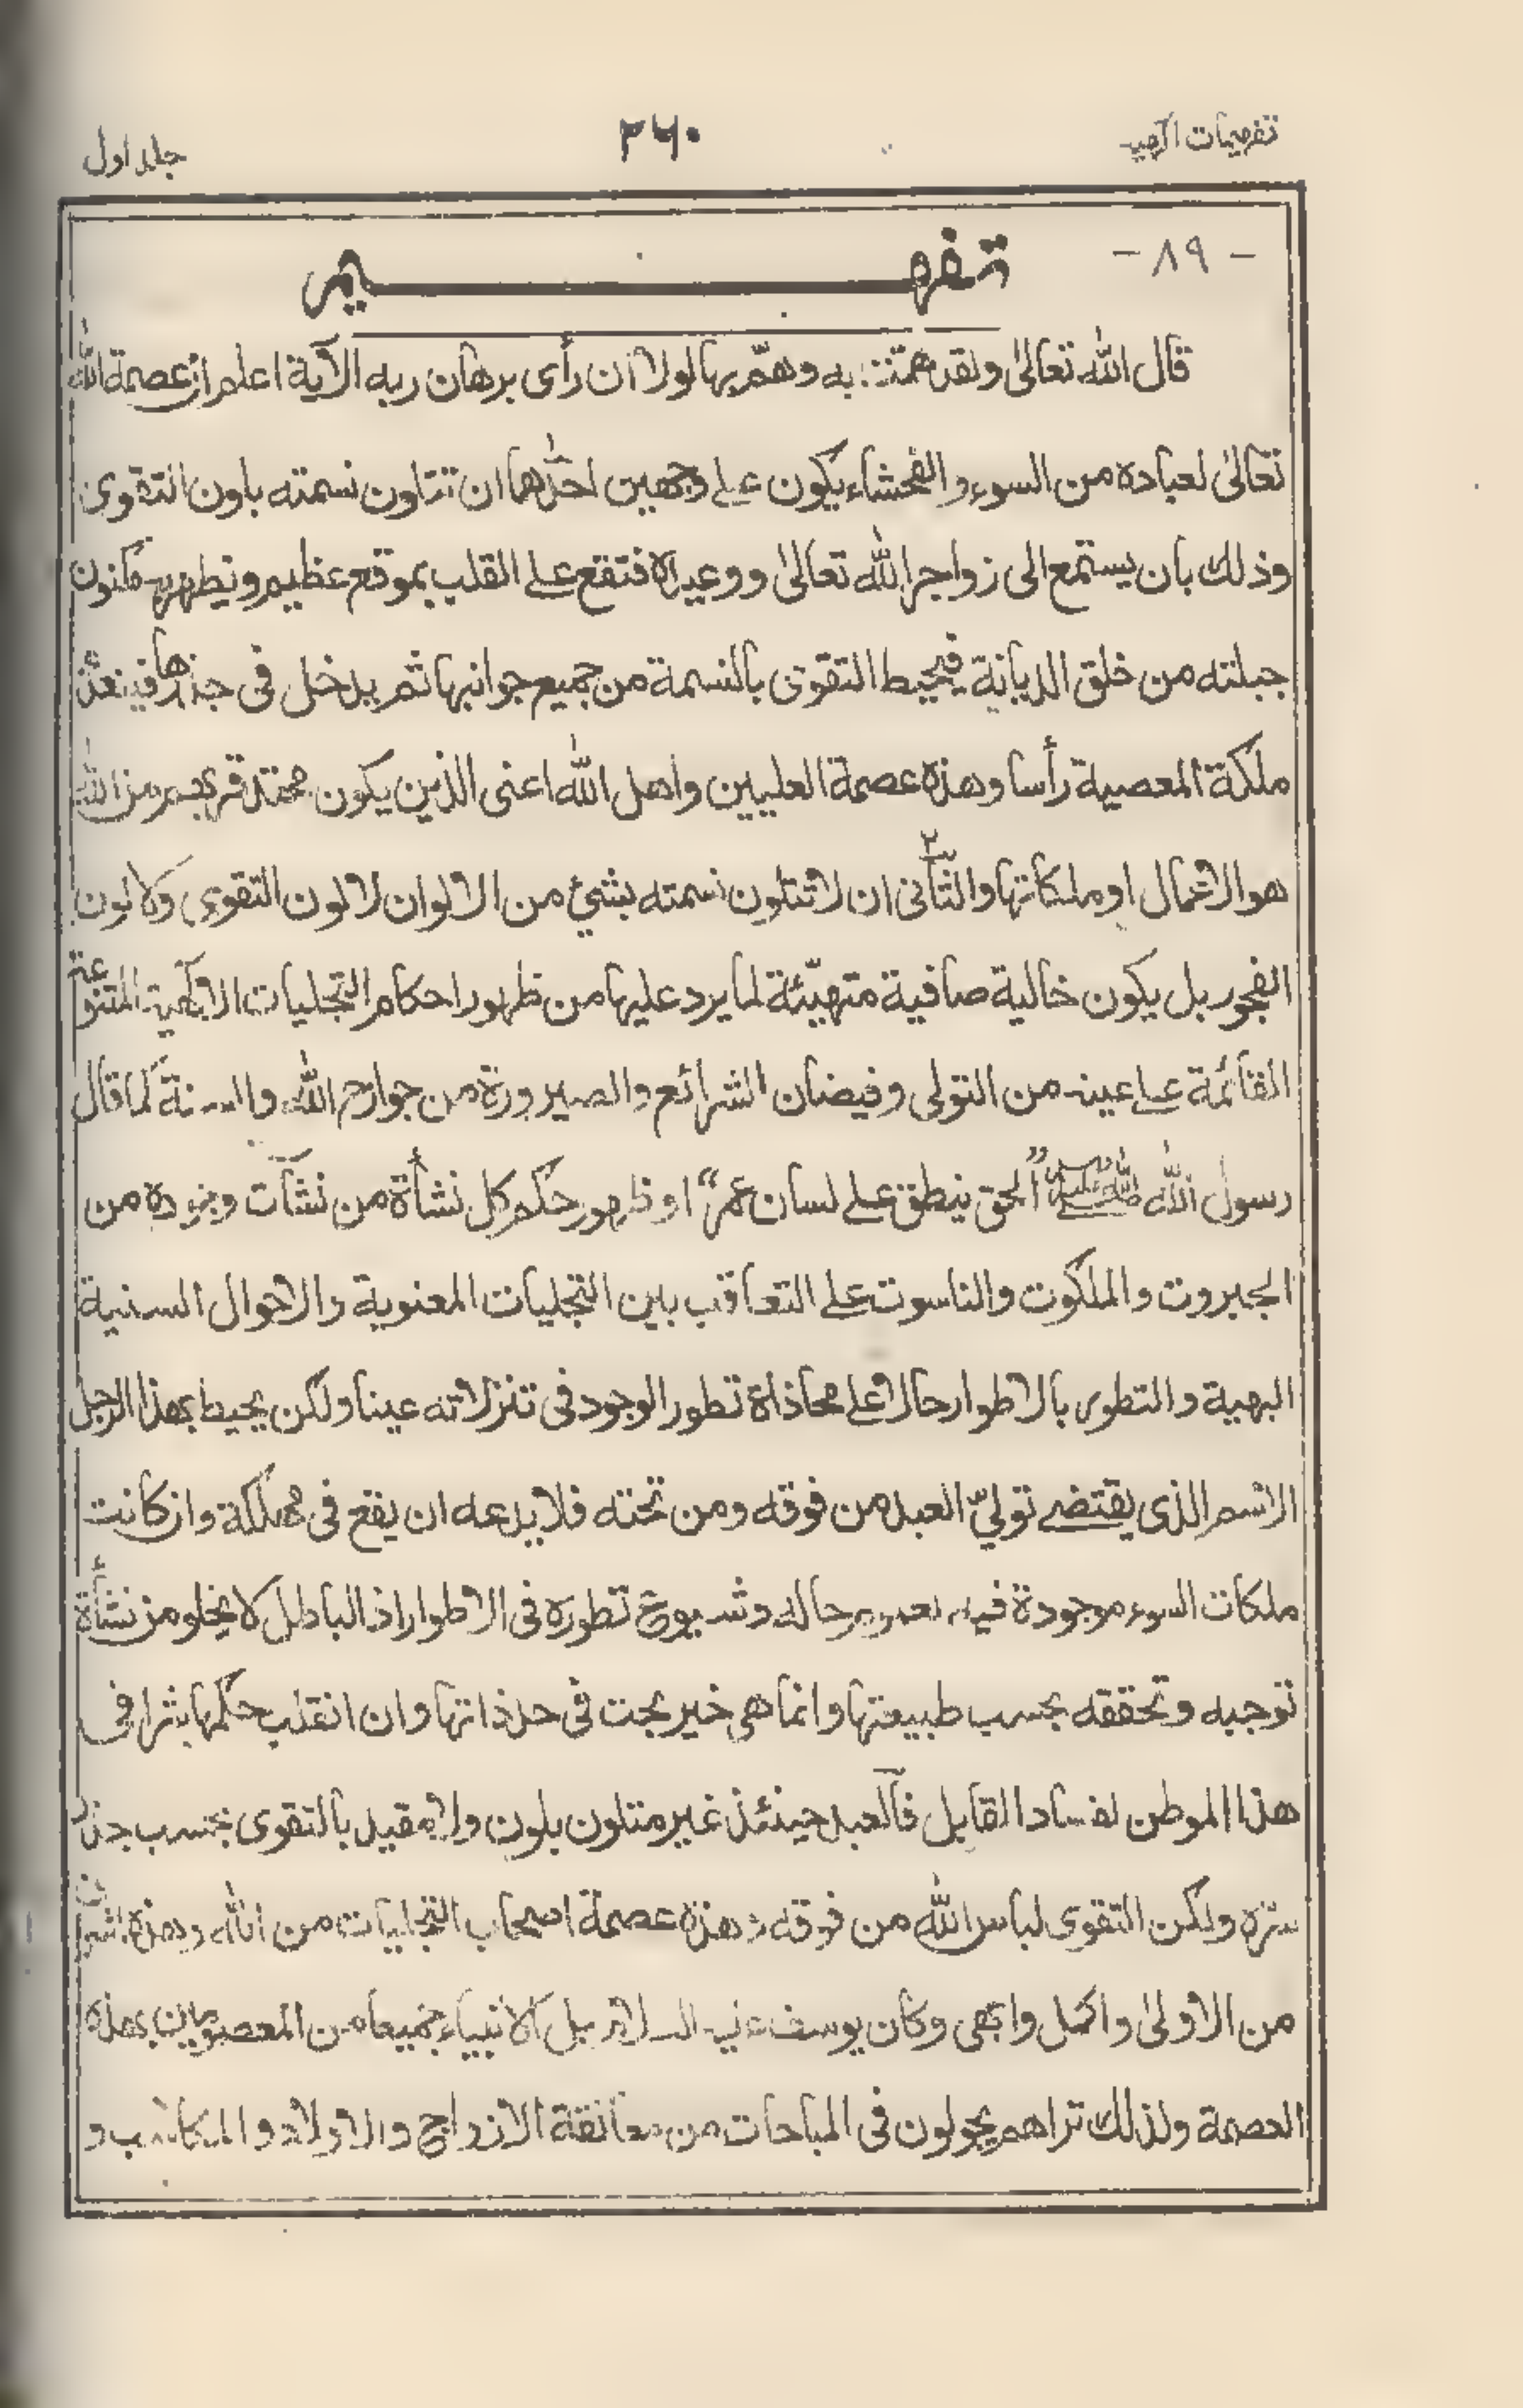 تفہیمات الٰہیہ ۲۶۰ جلد اول
- ۸۹ -
تفہیم
قال الله تعالىٰ ولقد همّت به وهمّ بها لولا ان رأى برهان ربه الآية اعلم ان عصمة الله
تعالىٰ لعباده من السوء والفحشاء يكون على وجهين احدهما ان تتلون نسمته بلون التقوى
وذلك بأن يستمع الى زواجر الله تعالىٰ ووعيده فتقع على القلب بموقع عظيم ويظهر به مكنون
جبلته من خلق الديانة فيحيط التقوى بالنسمة من جميع جوانبها ثم يدخل في جذرها فينعدم
ملكة المعصية رأسا وهذه عصمة العليين واهل الله اعنى الذين يكون محتد قربهم من الله
هو الاعمال او ملكاتها والثانى ان لا تتلون نسمته بشئ من الالوان لا لون التقوى ولا لون
الفجور بل يكون خالية صافية متهيّئة لما يرد عليها من ظهور احكام التجليات الالٰهية المتنوعة
القائمة على عينه من التولى وفيضان الشرائع والصيرورة من جوارح الله والسنة كما قال
رسول الله صلى الله عليه وسلم "الحق ينطق على لسان عمر" او ظهور حكم كل نشأة من نشآت وجوده من
الجبروت والملكوت والناسوت على التعاقب بين التجليات المعنوية والاحوال السنية
البهية والتطور بالاطوار حالا على محاذاة تطور الوجود فى تنزلاته عينا ولكن يحيط بهذا الرجل
الاسم الذى يقتضى تولىّ العبد من فوقه ومن تحته فلا يدعه ان يقع فى مهلكة وان كانت
ملكات السوء موجودة فيه حاله وشيوع تطوره فى الاطوار اذ الباطل لا يخلو من نشأة
توجبه وتحققه بحسب طبيعتها وانما هى خير بحت فى حد ذاتها وان انقلب حكمها شرا فى
هذا الموطن لفساد القابل فالعبد حينئذ غير متلون بلون ولا مقيد بالتقوى بحسب جذر
سرّه ولكن التقوى لباس الله من فوقه وهذه عصمة اصحاب التجليات من الله وهذه اشرف
من الاولىٰ واكمل وابهى وكان يوسف عليه السلام بل الانبياء جميعا من المعصومين بهذه
العصمة ولذلك تراهم يجولون فى المباحات من معانقة الازواج والاولاد والمكاسب و